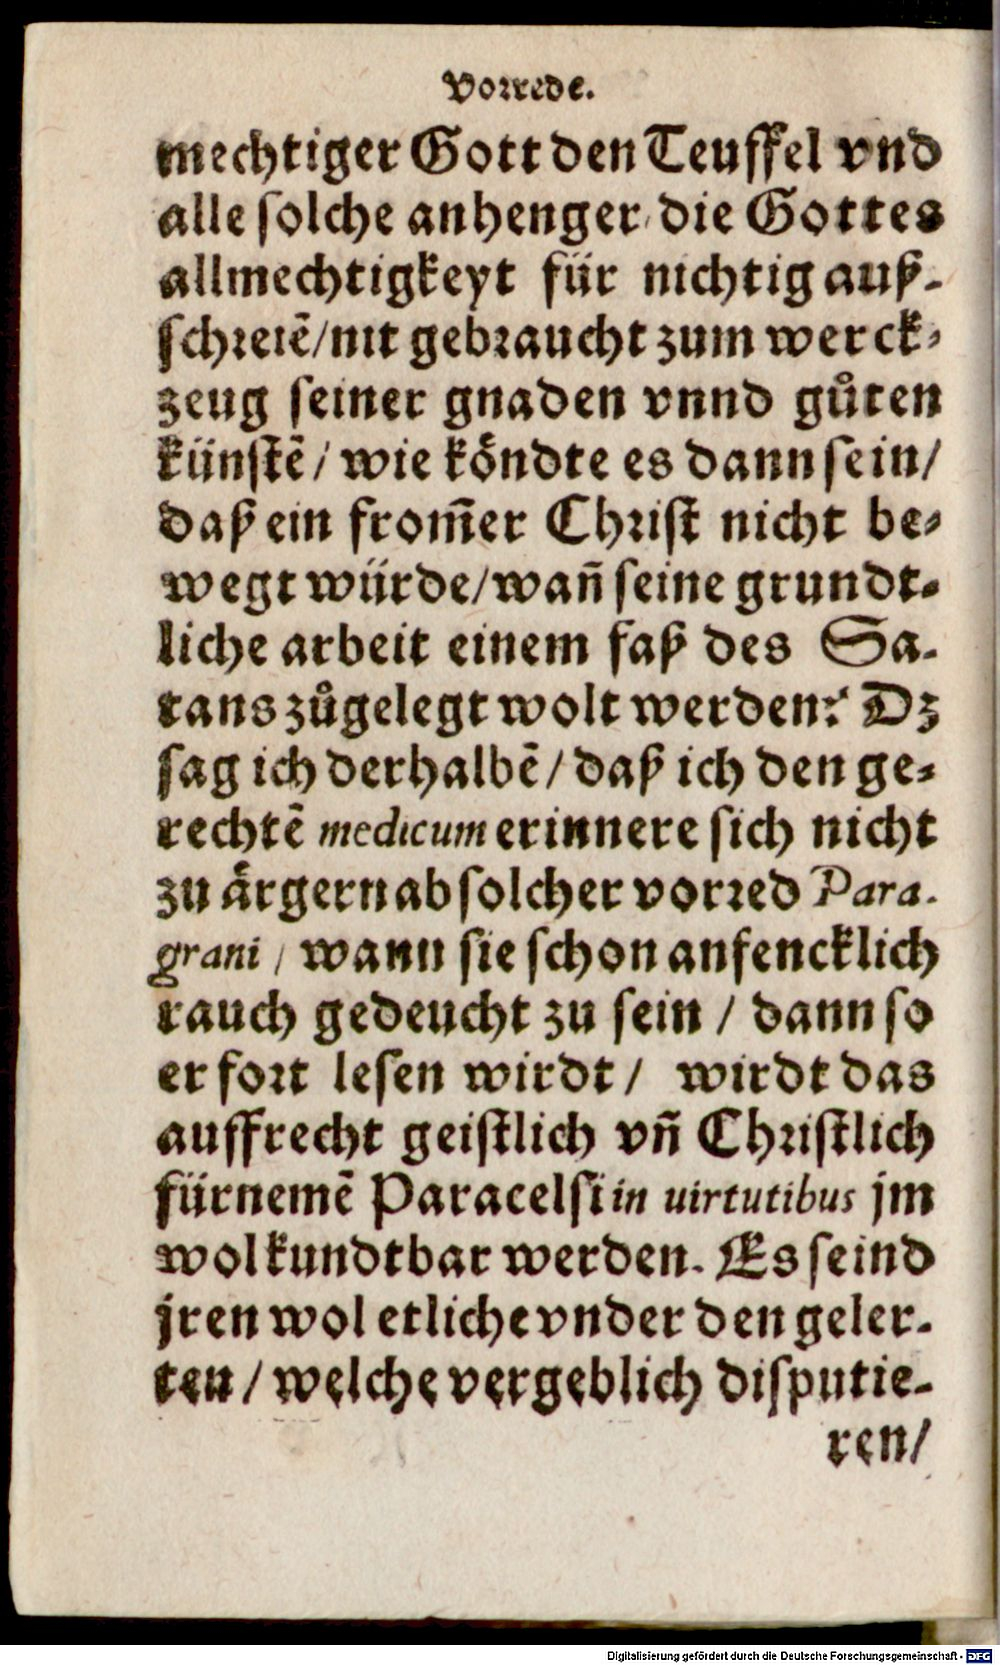 Vorrede.
mechtiger Gott den Teuffel vnd
alle solche anhenger, die Gottes
allmechtigkeyt für nichtig auß-
schreiē/nit gebraucht zum werck-
zeug seiner gnaden vnnd gůten
künstē/ wie köndte es dann sein/
daß ein from̄er Christ nicht be-
wegt würde/wan̄ seine grundt-
liche arbeit einem faß des Sa-
tans zůgelegt wolt werden? Dz
sag ich derhalbē/ daß ich den ge-
rechtē medicum erinnere sich nicht
zu ärgern ab solcher vorred Para-
grani, wann sie schon anfencklich
rauch gedeucht zu sein / dann so
er fort lesen wirdt/ wirdt das
auffrecht geistlich vn̄ Christlich
fürnemē Paracelsi in uirtutibus jm
wol kundtbar werden. Es seind
jren wol etliche vnder den geler-
ten/ welche vergeblich disputie-
ren/
Digitalisierung gefördert durch die Deutsche Forschungsgemeinschaft - DFG